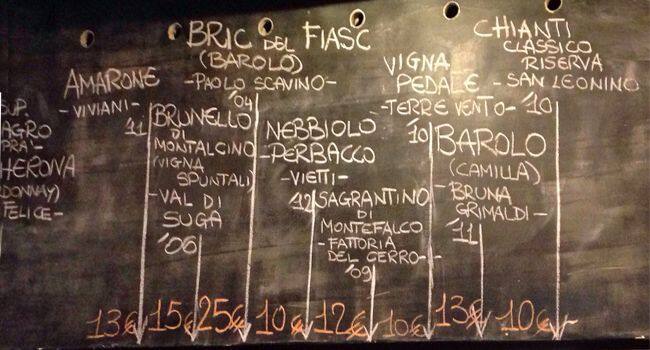 SUP.
AGRO
PRA'
HERONA
DONNAY)
FELICE-
AMARONE
-VIVIANI-
11
BRUNELLO
DI
MONTALCINO
(VIGNA
SPUNTALI)
-VAL DI
SUGA
'06
BRIC DEL FIASC
(BAROLO)
-PAOLO SCAVINO-
'04
NEBBIOLO
-PERBACCO
-VIETTI-
12
SAGRANTINO
DI
MONTEFALCO
-FATTORIA
DEL CERRO-
'09
VIGNA
PEDALE
-TERRE VENTO-
'10
BAROLO
(CAMILLA)
-BRUNA
GRIMALDI-
11
CHIANTI
CLASSICO
RISERVA
-SAN LEONINO
10
13€ 15€ 25€ 10€ 12€ 10€ 13€ 10€